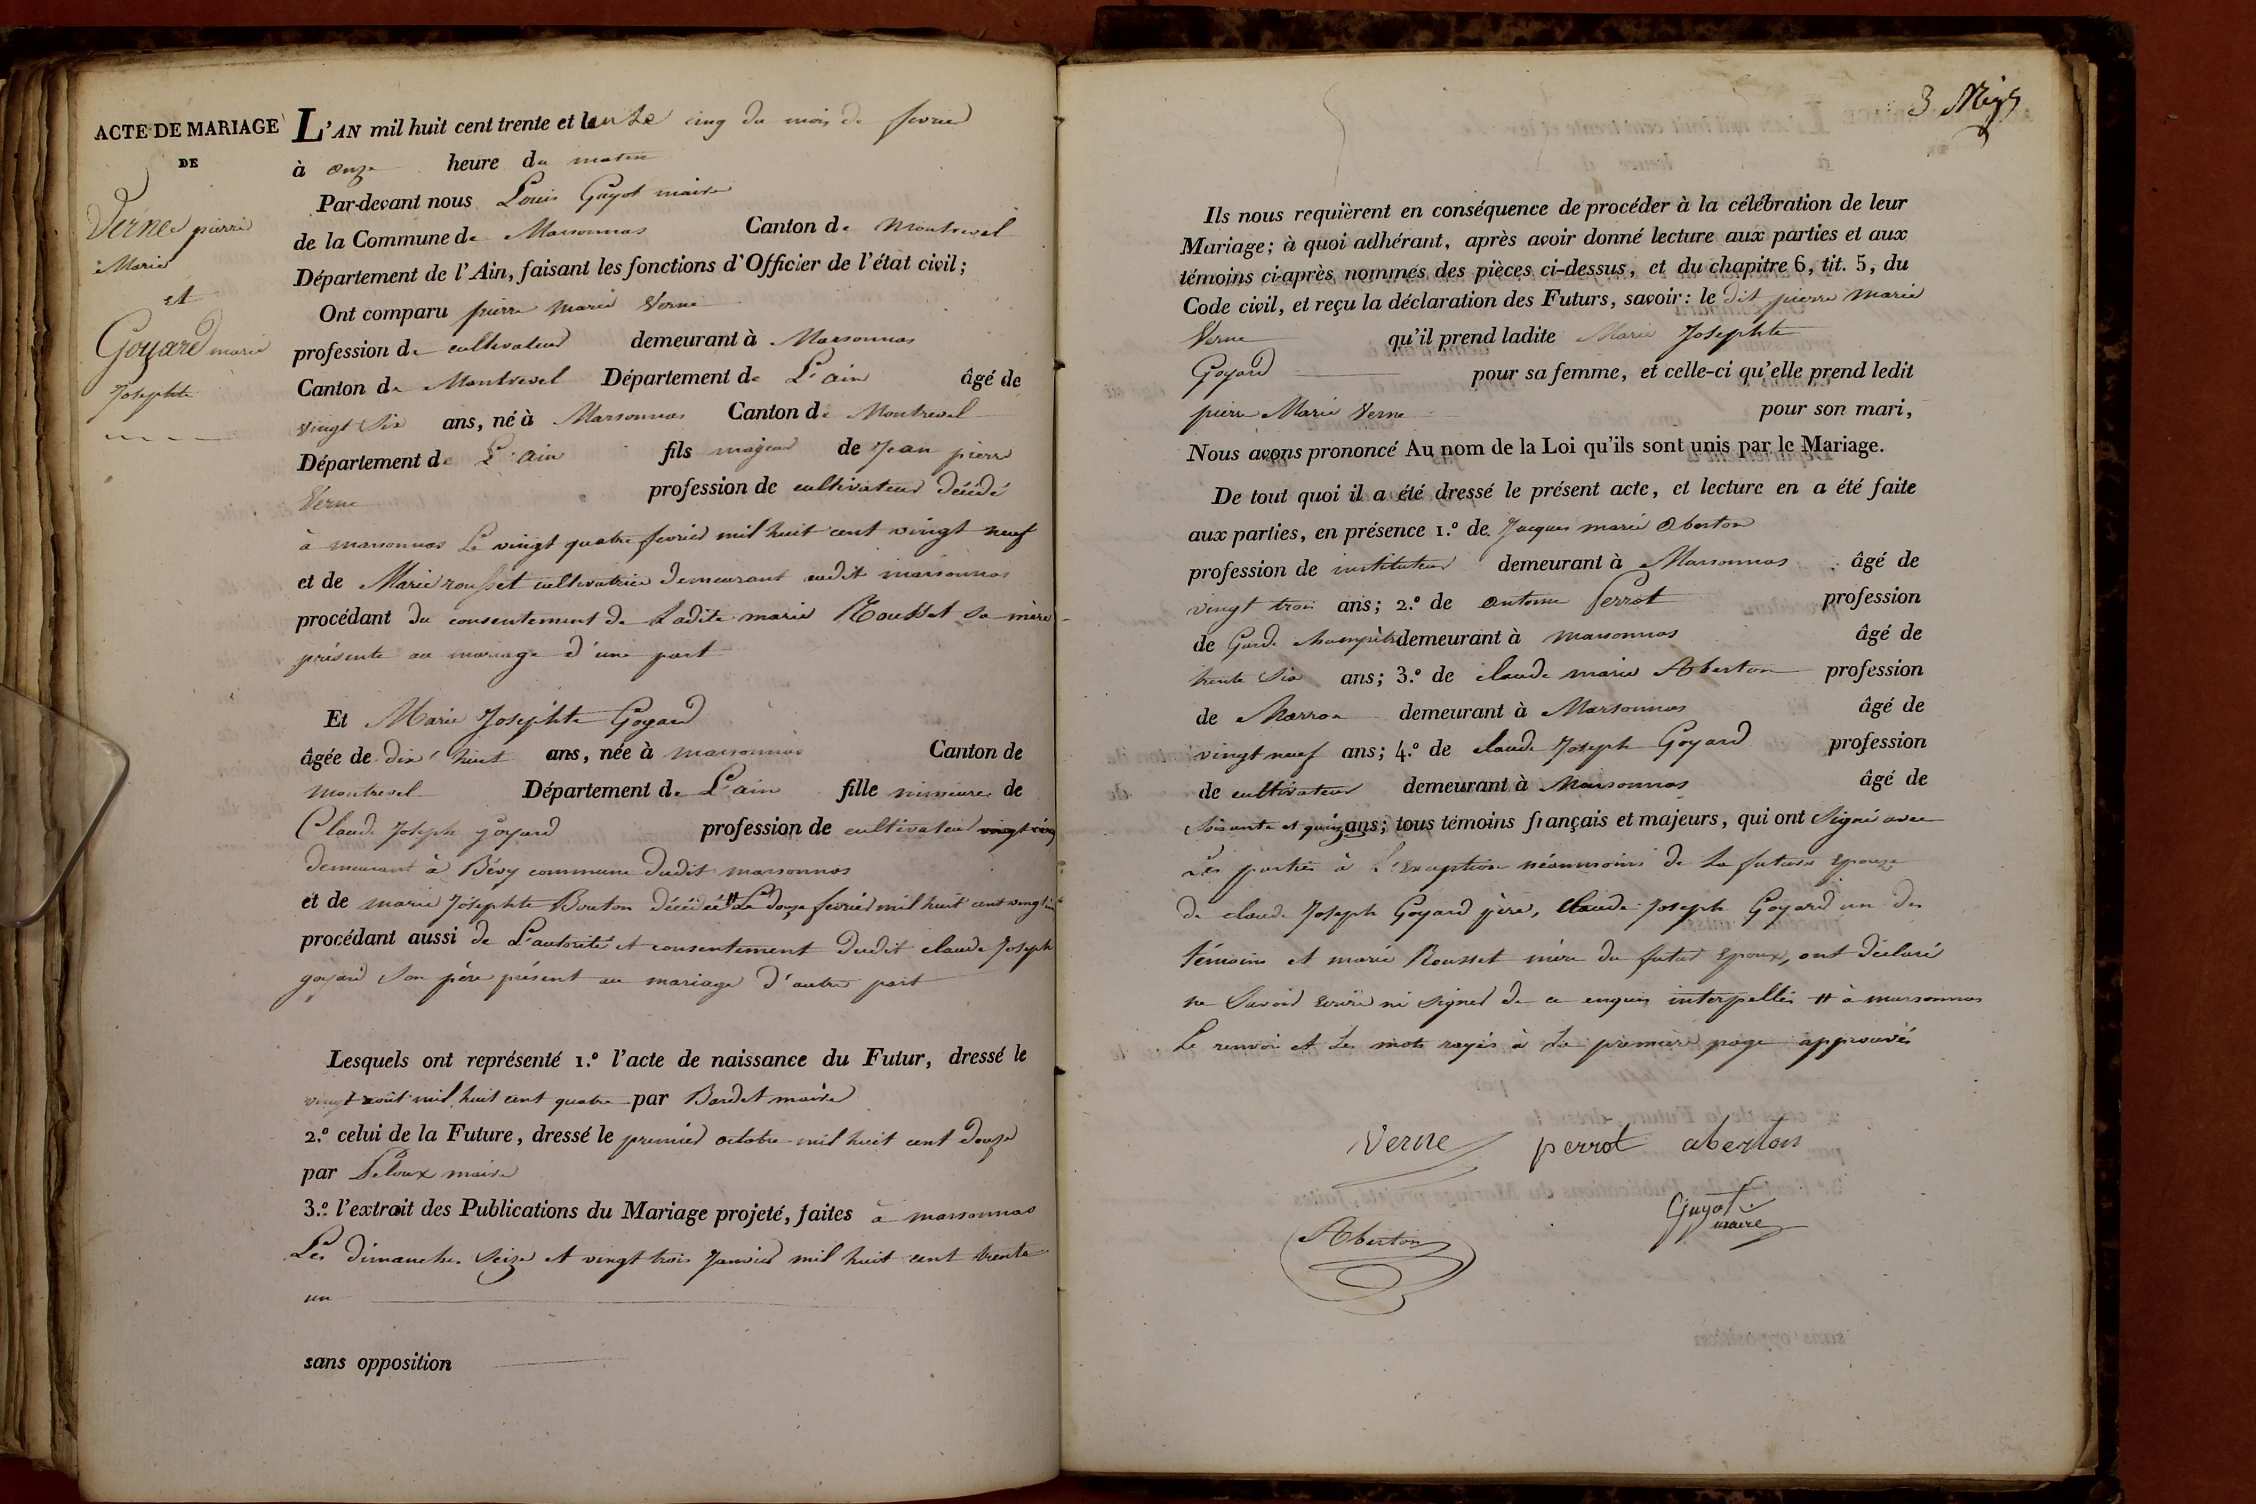 ACTE DE MARIAGE
DE
Verne pierre
Marie
et
Goyard marie
Josephte
L'AN mil huit cent trente et un le cinq du mois de fevrier
à onze heure du matin
Par-devant nous Louis Guyot maire
de la Commune de Marsonnas Canton de Montrevel
Département de l'Ain, faisant les fonctions d'Officier de l'état civil;
Ont comparu pierre marie Verne
profession de cultivateur demeurant à Marsonnas
Canton de Montrevel Département de L'ain âgé de
vingt six ans, né à Marsonnas Canton de Montrevel
Département de L'ain fils majeur de Jean pierre
Verne profession de cultivateur décédé
à marsonnas Le vingt quatre fevrier mil huit cent vingt neuf
et de Marie rousset cultivatrice demeurant audit marsonnas
procédant du consentement de Ladite marie Rousset sa mère
présente au mariage d'une part
Et Marie Josephte Goyard
âgée de dix huit ans, née à marsonnas Canton de
montrevel Département de L'ain fille mineure de
Claude Joseph goyard profession de cultivateur vingt cinq
demeurant à Bévy commune dudit marsonnas
et de marie Josephte Bouton décédée # Le douze fevrier mil huit cent vingt
procédant aussi de L'autorité et consentement dudit claude Joseph
goyard son père présent au mariage d'autre part
Lesquels ont représenté 1.º l'acte de naissance du Futur, dressé le
vingt août mil huit cent quatre par Bardet maire
2.º celui de la Future, dressé le premier octobre mil huit cent douze
par Peloux maire
3.º l'extrait des Publications du Mariage projeté, faites à marsonnas
Les dimanches seize et vingt trois Janvier mil huit cent trente
un
sans opposition
Ils nous requièrent en conséquence de procéder à la célébration de leur
Mariage; à quoi adhérant, après avoir donné lecture aux parties et aux
témoins ci-après nommés des pièces ci-dessus, et du chapitre 6, tit. 5, du
Code civil, et reçu la déclaration des Futurs, savoir: le dit pierre marie
Verne qu'il prend ladite Marie Josephte
Goyard pour sa femme, et celle-ci qu'elle prend ledit
pierre Marie Verne pour son mari,
Nous avons prononcé Au nom de la Loi qu'ils sont unis par le Mariage.
De tout quoi il a été dressé le présent acte, et lecture en a été faite
aux parties, en présence 1.º de Jacques marie Aberton
profession de instituteur demeurant à Marsonnas âgé de
vingt trois ans; 2.º de antoine Perrot profession
de Garde champêtre demeurant à marsonnas âgé de
trente six ans; 3.º de claude marie Aberton profession
de Marron demeurant à Marsonnas âgé de
vingt neuf ans; 4.º de claude Joseph Goyard profession
de cultivateur demeurant à Marsonnas âgé de
soixante et quinze ans; tous témoins français et majeurs, qui ont signé avec
Les parties à L'exception néanmoins de La future epouse
de claude Joseph Goyard père, claude Joseph Goyard un des
témoins et marie Rousset mère du futur epoux, ont déclaré
ne savoir ecrire ni signer de ce enquis interpellés # à marsonnas
Le renvoi et Les mots rayés à La première page approuvés
Verne perrot aberton
Guyot
maire
Aberton